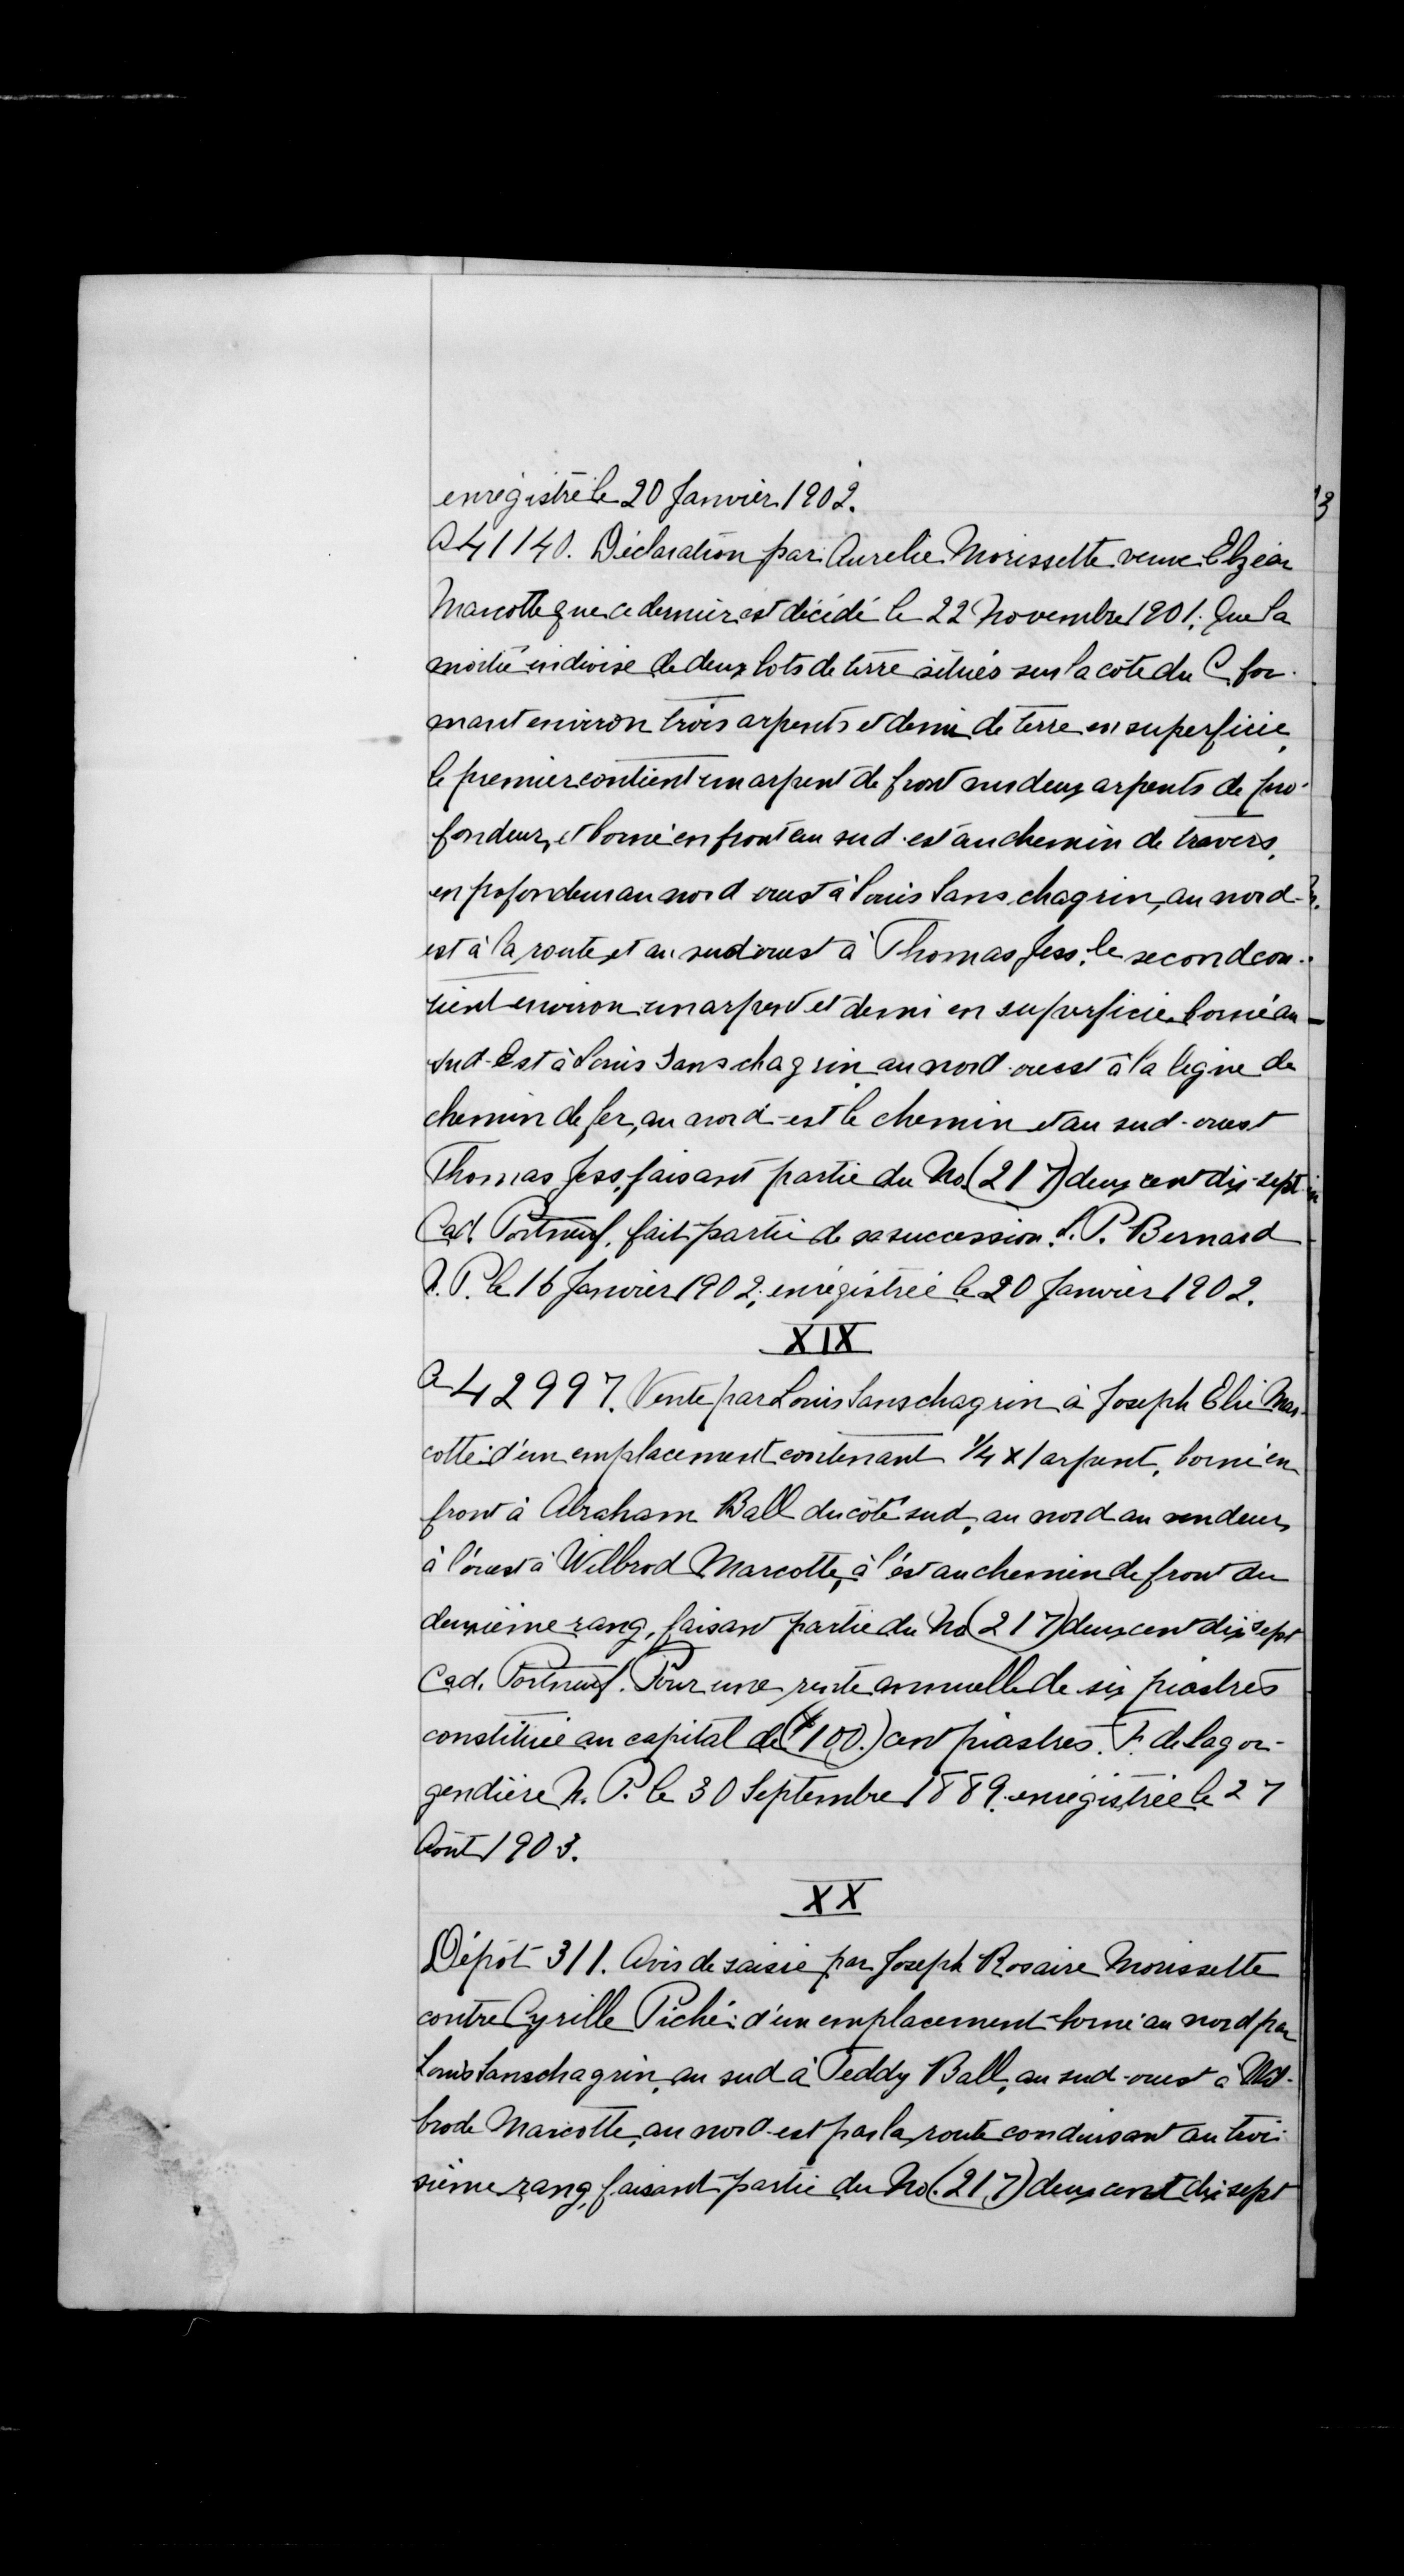 enregistré le 20 Janvier 1902.
A 41140. Déclaration par Aurelie Morissette veuve Elzéar
Marcotte que ce dernier est décédé le 22 Novembre 1901; Que la
moitié indivise de deux lots de terre situés sur la côte du C. for-
mant environ trois arpents et demi de terre en superficie,
le premier contient un arpent de front sur deux arpents de pro-
fondeur, et borné en front au sud-est au chemin de travers,
en profondeur au nord ouest à Louis Sanschagrin, au nord-
est à la route et au sud ouest à Thomas Jess; le second con-
tient environ un arpent et demi en superficie borné au
Sud-Est à Louis Sanschagrin, au nord-ouest à la ligne du
chemin de fer, au nord-est le chemin et au sud-ouest
Thomas Jess, faisant partie du No. (217) deux cent dix-sept
Cad. Portneuf, fait partie de sa succession. L. P. Bernard
N. P. le 16 Janvier 1902; enregistrée le 20 Janvier 1902.
XIX
A 42997. Vente par Louis Sanschagrin à Joseph Elie Mar-
cotte: d'un emplacement contenant 1/4 x 1 arpent, borné en
front à Abraham Ball du côté sud, au nord au vendeur,
à l'ouest à Wilbrod Marcotte, à l'est au chemin de front du
deuxième rang, faisant partie du No (217) deux cent dix sept
Cad. Portneuf. Pour une rente annuelle de six piastres
constituée au capital de ($100.) cent piastres. F. de Lagor-
gendière N. P. le 30 Septembre 1889. enregistrée le 27
Août 1903.
XX
Dépôt 311. Avis de saisie par Joseph Rosaire Morissette
contre Cyrille Piché: d'un emplacement borné au nord par
Louis Sanschagrin, au sud à Teddy Ball, au sud-ouest à Wil-
brode Marcotte, au nord-est par la route conduisant au troi-
sième rang, faisant partie du No. (217) deux cent dix sept